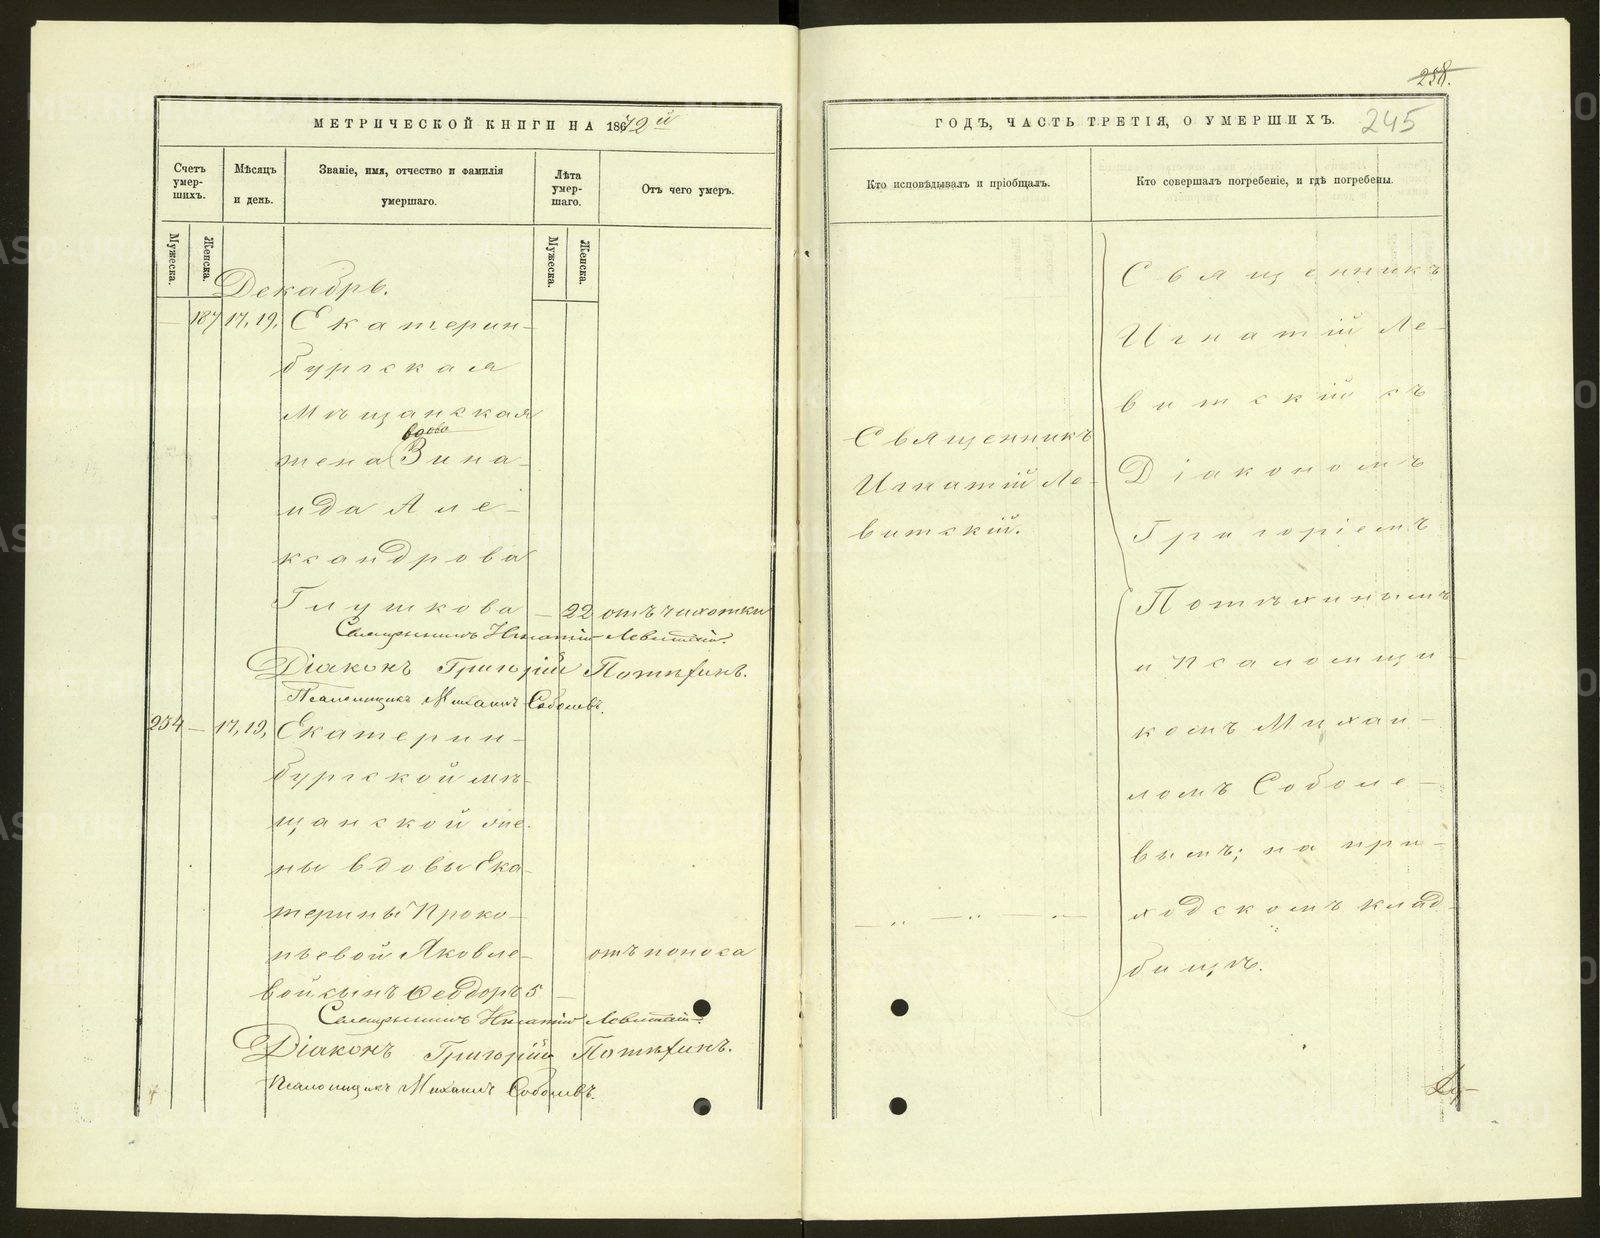 МЕТРИЧЕСКОЙ КНИГИ НА 1872й
Счетъ умер-шихъ.
Мѣсяцъ и день.
Званіе, имя, отчество и фамилія умершаго.
Лѣта умер-шаго.
Отъ чего умеръ.
Мужеска.
Женска.
Мужеска.
Женска.
Декабрь.
— 187 17, 19, Екатерин-
бургская
Мѣщанская
вдова
жена Зина-
ида Але-
ксандрова
Глушкова — 22 отъ чахотки
Священникъ Игнатій Левитскій.
Діаконъ Григорій Потѣхинъ.
Псаломщикъ Михаилъ Соболевъ.
254 — 17, 19, Екатерин-
бургской мѣ-
щанской же-
ны вдовы Ека-
терины Проко-
пьевой Яковле-
отъ поноса
вой сынъ Ѳеодоръ 5 —
Священникъ Игнатій Левитскій.
Діаконъ Григорій Потѣхинъ.
Псаломщикъ Михаилъ Соболевъ.
258.
ГОДЪ, ЧАСТЬ ТРЕТІЯ, О УМЕРШИХЪ. 245
Кто исповѣдывалъ и пріобщалъ.
Кто совершалъ погребеніе, и гдѣ погребены.
Священникъ
Игнатій Ле-
витскій.
Священникъ
Игнатій Ле-
витскій съ
Діакономъ
Григоріемъ
Потѣхинымъ
и Псаломщи-
комъ Михаи-
ломъ Соболе-
вымъ; на при-
ходскомъ клад-
бищѣ.